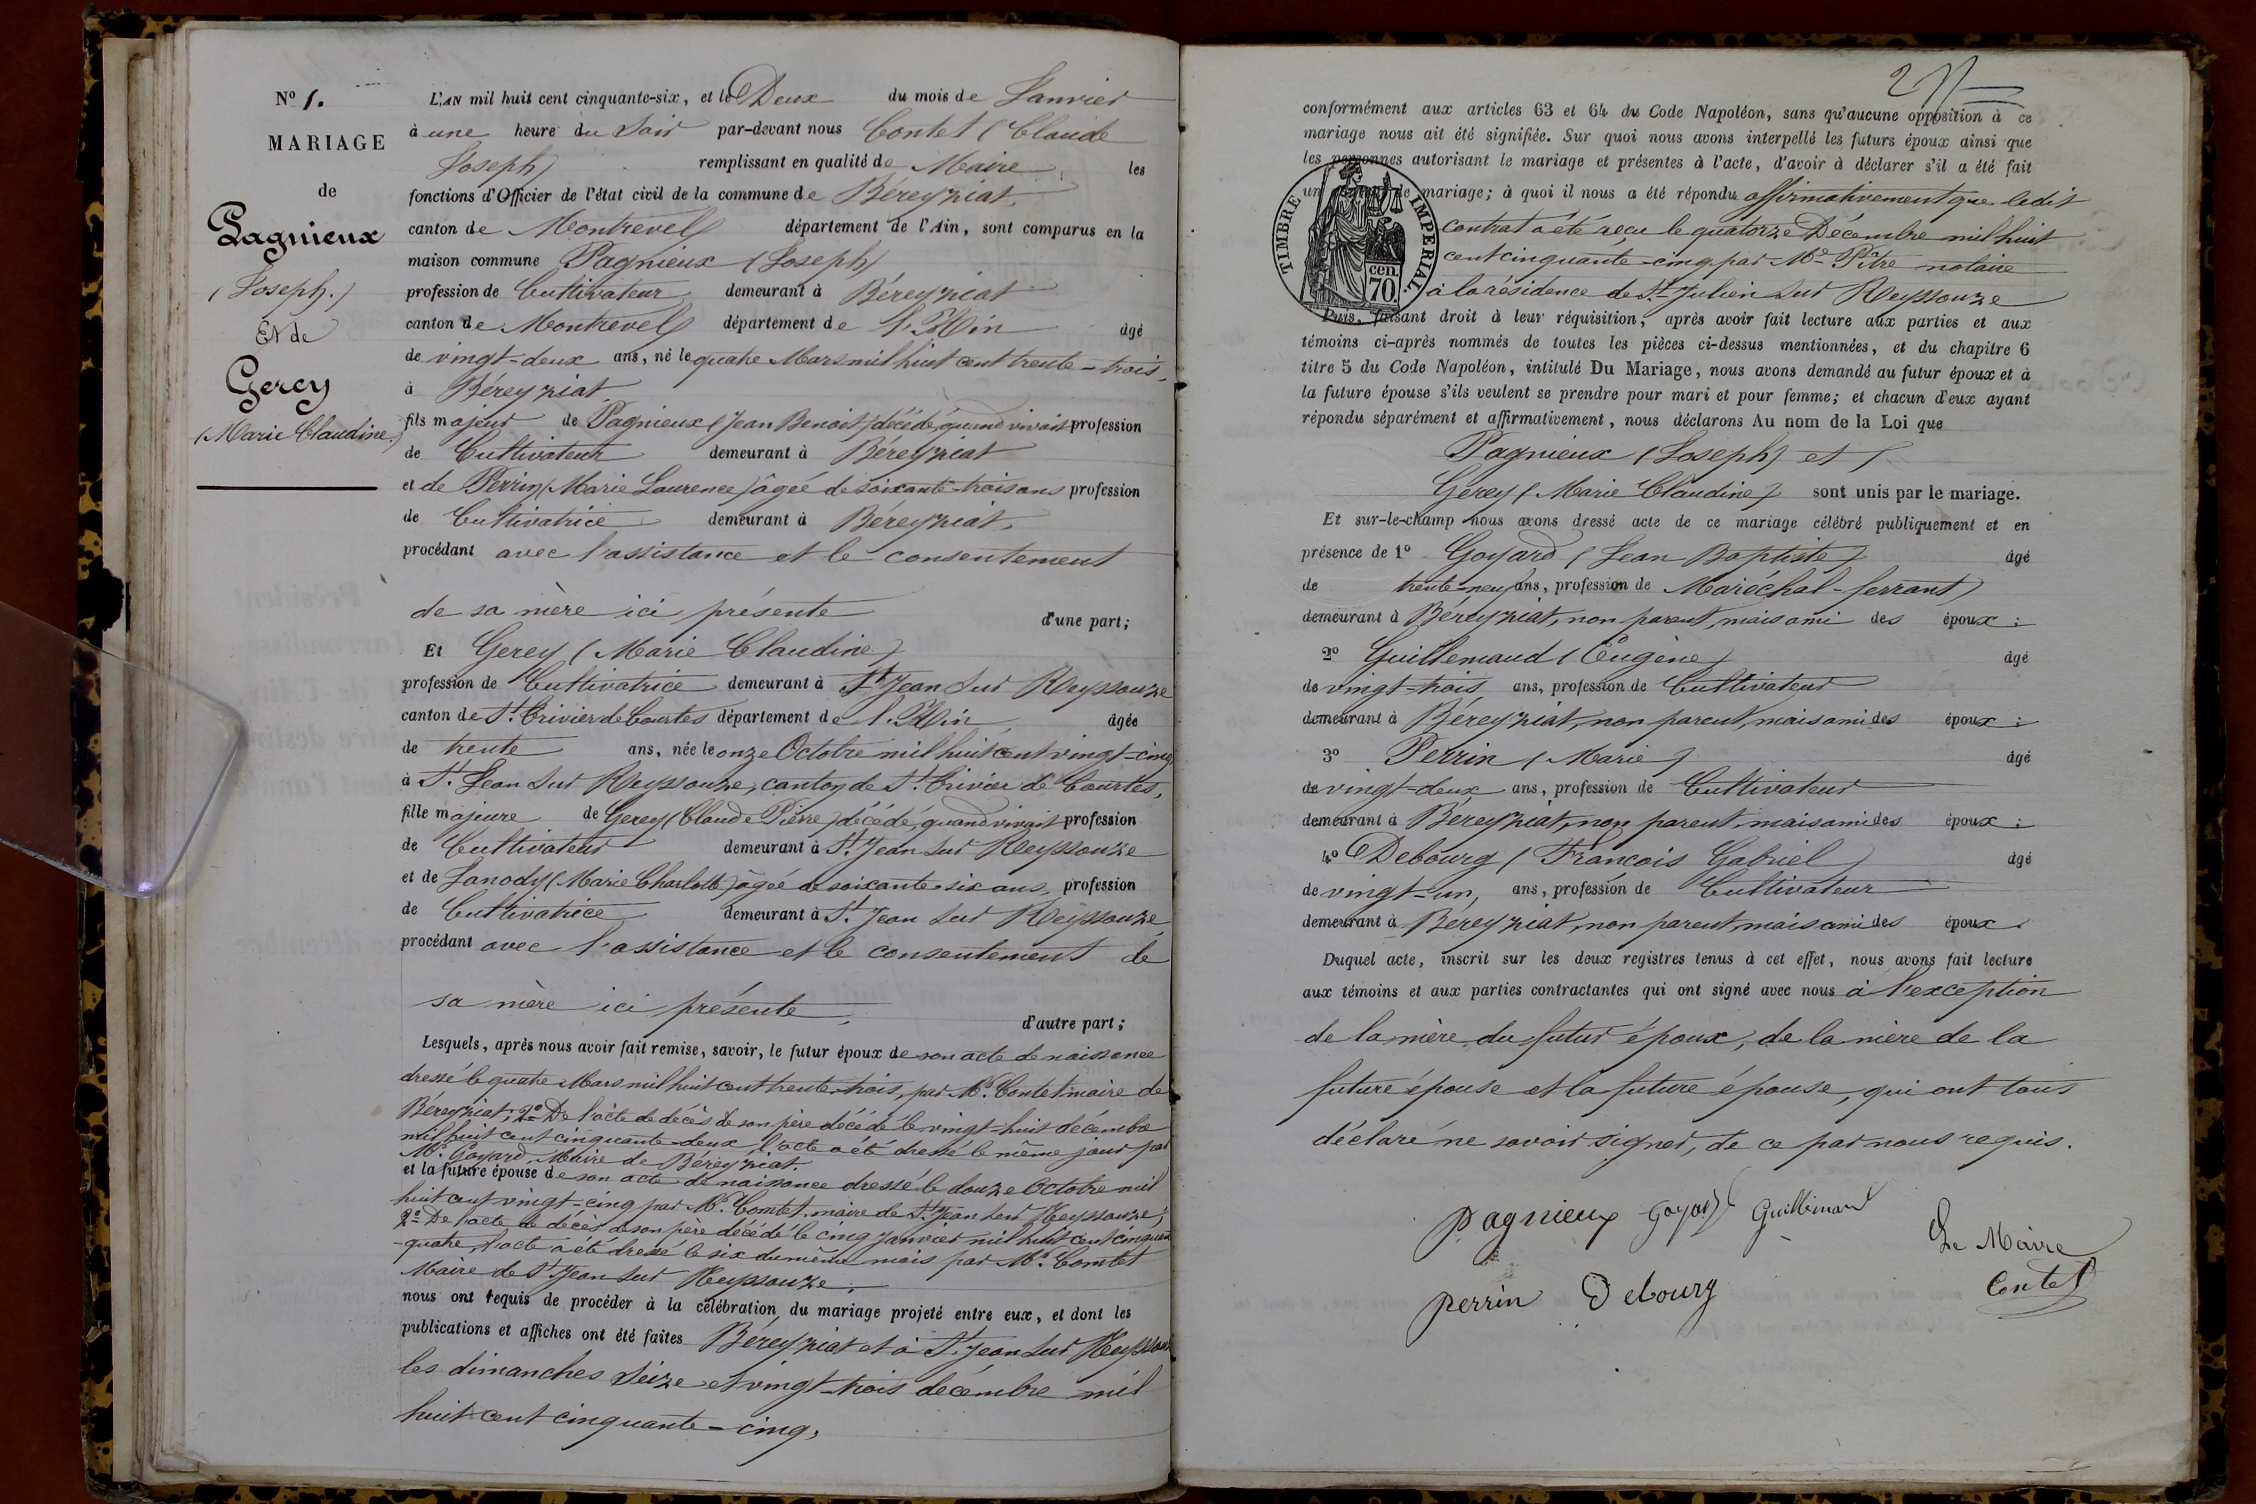 N° 1.
MARIAGE
de
Pagnieux
(Joseph.)
Et de
Gerey
(Marie Claudine.)
L'AN mil huit cent cinquante-six, et le Deux du mois de Janvier
à une heure du Soir par-devant nous Contet (Claude
Joseph) remplissant en qualité de Maire les
fonctions d'Officier de l'état civil de la commune de Béreyziat,
canton de Montrevel département de l'Ain, sont comparus en la
maison commune Pagnieux (Joseph)
profession de Cultivateur demeurant à Béreyziat
canton de Montrevel département de l'Ain âgé
de vingt-deux ans, né le quatre Mars mil huit cent trente-trois,
à Béreyziat
fils majeur de Pagnieux (Jean Benoit) décédé, quand vivait profession
de Cultivateur demeurant à Béreyziat
et de Perrin (Marie Laurence) âgée de soixante-trois ans profession
de Cultivatrice demeurant à Béreyziat,
procédant avec l'assistance et le consentement
de sa mère ici présente d'une part;
Et Gerey (Marie Claudine)
profession de Cultivatrice demeurant à St Jean Sur Reyssouze
canton de St. Trivier de Courtes département de l'Ain âgée
de trente ans, née le onze Octobre mil huit cent vingt-cinq
à St. Jean Sur Reyssouze, canton de St. Trivier de Courtes,
fille majeure de Gerey (Claude Pierre) décédé, quand vivait profession
de Cultivateur demeurant à St. Jean Sur Reyssouze
et de Janody (Marie Charlotte) âgée de soixante-six ans, profession
de Cultivatrice demeurant à St. Jean Sur Reyssouze
procédant avec l'assistance et le consentement de
sa mère ici présente, d'autre part;
Lesquels, après nous avoir fait remise, savoir, le futur époux de son acte de naissance
dressé le quatre Mars mil huit cent trente-trois, par Mr. Contet maire de
Béreyziat; 2° De l'acte de décès de son père décédé le vingt-huit décembre
mil huit cent cinquante-deux, l'acte a été dressé le même jour par
Mr. Goyard, Maire de Béreyziat.
et la future épouse de son acte de naissance dressé le douze Octobre mil
huit cent vingt-cinq par Mr. Comtet, maire de St. Jean Sur Reyssouze;
2° De l'acte de décès de son père décédé le cinq Janvier mil huit cent cinquante
-quatre, l'acte a été dressé le six du même mois par Mr. Comtet
Maire de St Jean Sur Reyssouze.
nous ont requis de procéder à la célébration du mariage projeté entre eux, et dont les
publications et affiches ont été faites Béreyziat et à St. Jean Sur Reyssouze
les dimanches Seize et vingt-trois décembre mil
huit cent cinquante-cinq,
conformément aux articles 63 et 64 du Code Napoléon, sans qu'aucune opposition à ce
mariage nous ait été signifiée. Sur quoi nous avons interpellé les futurs époux ainsi que
les personnes autorisant le mariage et présentes à l'acte, d'avoir à déclarer s'il a été fait
un de mariage; à quoi il nous a été répondu affirmativement que ledit
contrat a été reçu le quatorze Décembre mil huit
cent cinquante-cinq par Me. Pitre notaire
à la résidence de St. Julien Sur Reyssouze
TIMBRE IMPERIAL
70 cen.
Puis, faisant droit à leur réquisition, après avoir fait lecture aux parties et aux
témoins ci-après nommés de toutes les pièces ci-dessus mentionnées, et du chapitre 6
titre 5 du Code Napoléon, intitulé Du Mariage, nous avons demandé au futur époux et à
la future épouse s'ils veulent se prendre pour mari et pour femme; et chacun d'eux ayant
répondu séparément et affirmativement, nous déclarons Au nom de la Loi que
Pagnieux (Joseph) et
Gerey (Marie Claudine) sont unis par le mariage.
Et sur-le-champ nous avons dressé acte de ce mariage célébré publiquement et en
présence de 1° Goyard (Jean Baptiste) âgé
de trente-neuf ans, profession de Maréchal-ferrant,
demeurant à Béreyziat, non parent, mais ami des époux;
2° Guillemaud (Eugène) âgé
de vingt-trois ans, profession de Cultivateur
demeurant à Béreyziat, non parent, mais ami des époux;
3° Perrin (Marie) âgé
de vingt-deux ans, profession de Cultivateur
demeurant à Béreyziat, non parent, mais ami des époux;
4° Debourg (François Gabriel) âgé
de vingt-un, ans, profession de Cultivateur
demeurant à Béreyziat, non parent, mais ami des époux.
Duquel acte, inscrit sur les deux registres tenus à cet effet, nous avons fait lecture
aux témoins et aux parties contractantes qui ont signé avec nous à l'exception
de la mère du futur époux, de la mère de la
future épouse et la future épouse, qui ont tous
déclaré ne savoir signer, de ce par nous requis.
Pagnieux Goyard Guillemaud
Le Maire
Perrin Debourg
Contet